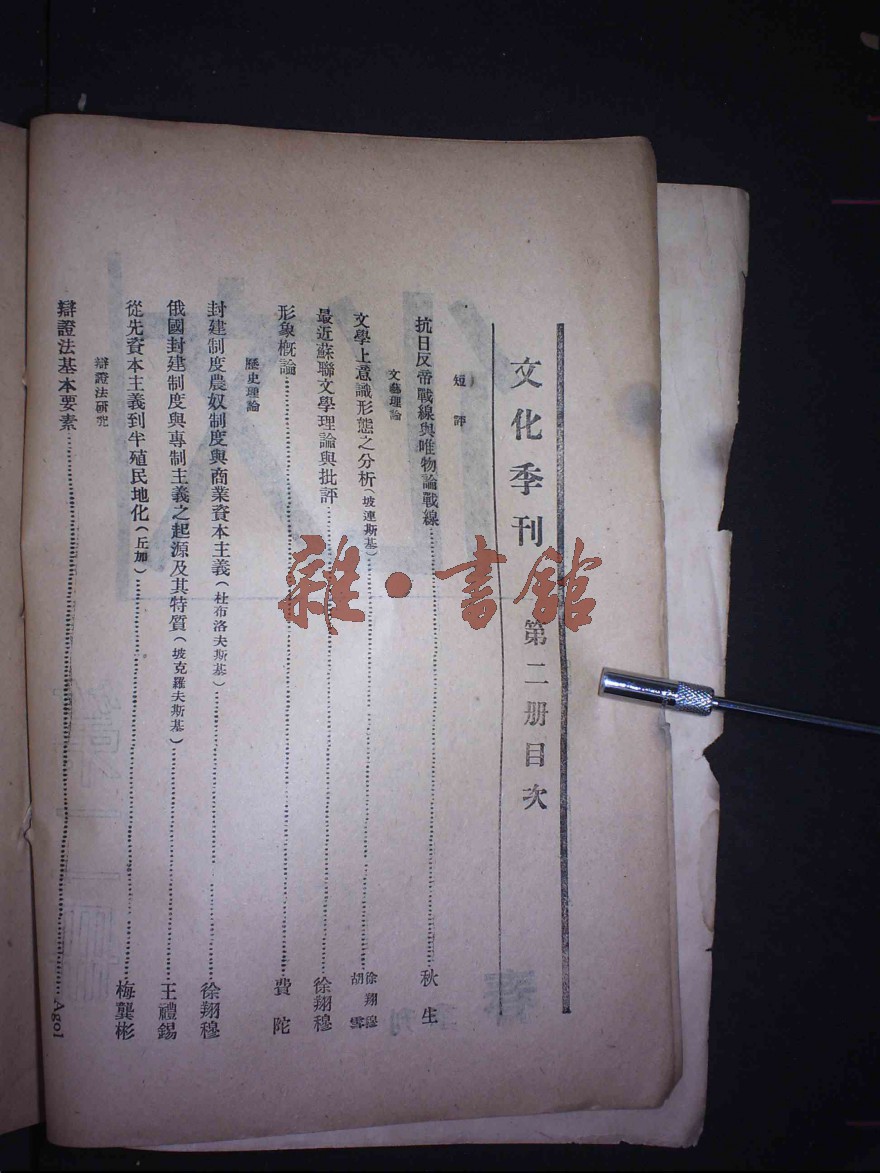 文化季刊 第二册目次
短評
抗日反帝戰線與唯物論戰線……秋生
文藝理論
文學上意識形態之分析(坡連斯基)……徐翔穆 胡雪
最近蘇聯文學理論與批評……徐翔穆
形象概論……費陀
歷史理論
封建制度農奴制度與商業資本主義(杜布洛夫斯基)……徐翔穆
俄國封建制度與專制主義之起源及其特質(坡克羅夫斯基)……王禮錫
從先資本主義到半殖民地化(丘加)……梅龔彬
辯證法研究
辯證法基本要素……Agol
雜·書館